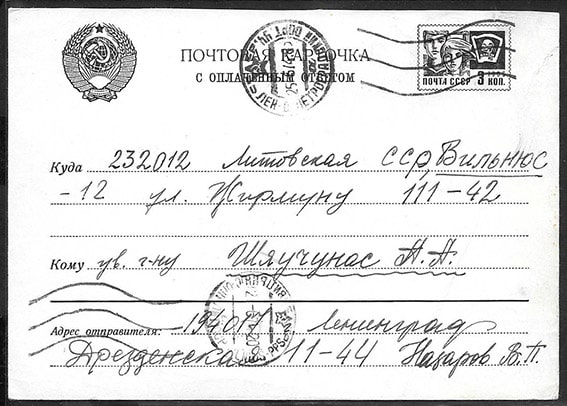 ПОЧТОВАЯ КАРТОЧКА
С ОПЛАЧЕННЫМ ОТВЕТОМ
ПОЧТА СССР 3 КОП.
Куда 232012 Литовская ССР, Вильнюс
-12 ул. Жирмуну 111-42
Кому ув. г-ну Шяучунас А.А.
Адрес отправителя: -194017 Ленинград
Дрезденская 11-44 Назаров В.П.